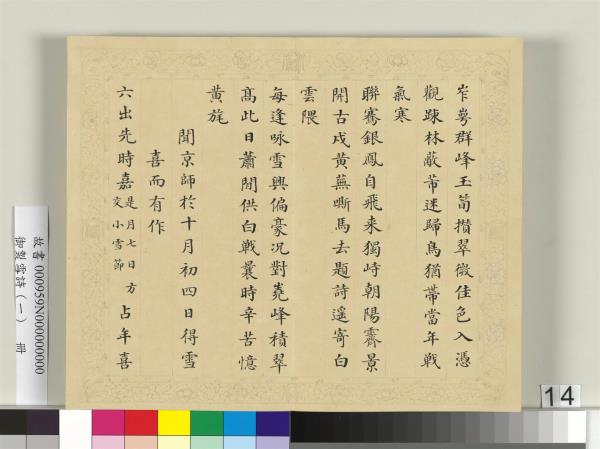 岝崿群峰玉筍攢翠微佳色入憑
觀踈林蔽芾迷歸鳥猶帶當年戰
氣寒
聯騫銀鳳自飛来獨峙朝陽霽景
開古戍黄蕪嘶馬去題詩遥寄白
雲隈
每逢咏雪興偏豪况對嶤峰積翠
高此日蕭閒供白戰曩時辛苦憶
黄旄
聞京師於十月初四日得雪
喜而有作
六出先時嘉是月七日方交小雪節占年喜
故書 000959N000000000
御製雪詩（一） 冊
14